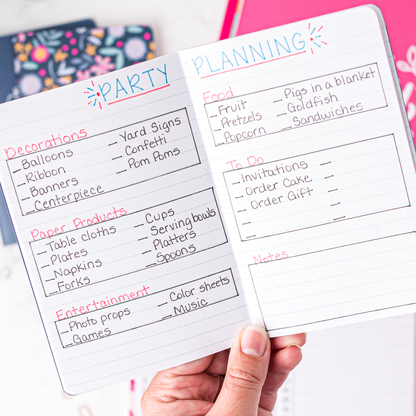 PARTY
Decorations
Balloons
Ribbon
Banners
Centerpiece
Yard Signs
Confetti
Pom Poms
Paper Products
Table cloths
Plates
Napkins
Forks
Cups
Serving bowls
Platters
Spoons
Entertainment
Photo props
Games
Color sheets
Music
PLANNING
Food
Fruit
Pretzels
Popcorn
Pigs in a blanket
Goldfish
Sandwiches
To Do
Invitations
Order Cake
Order Gift
Notes